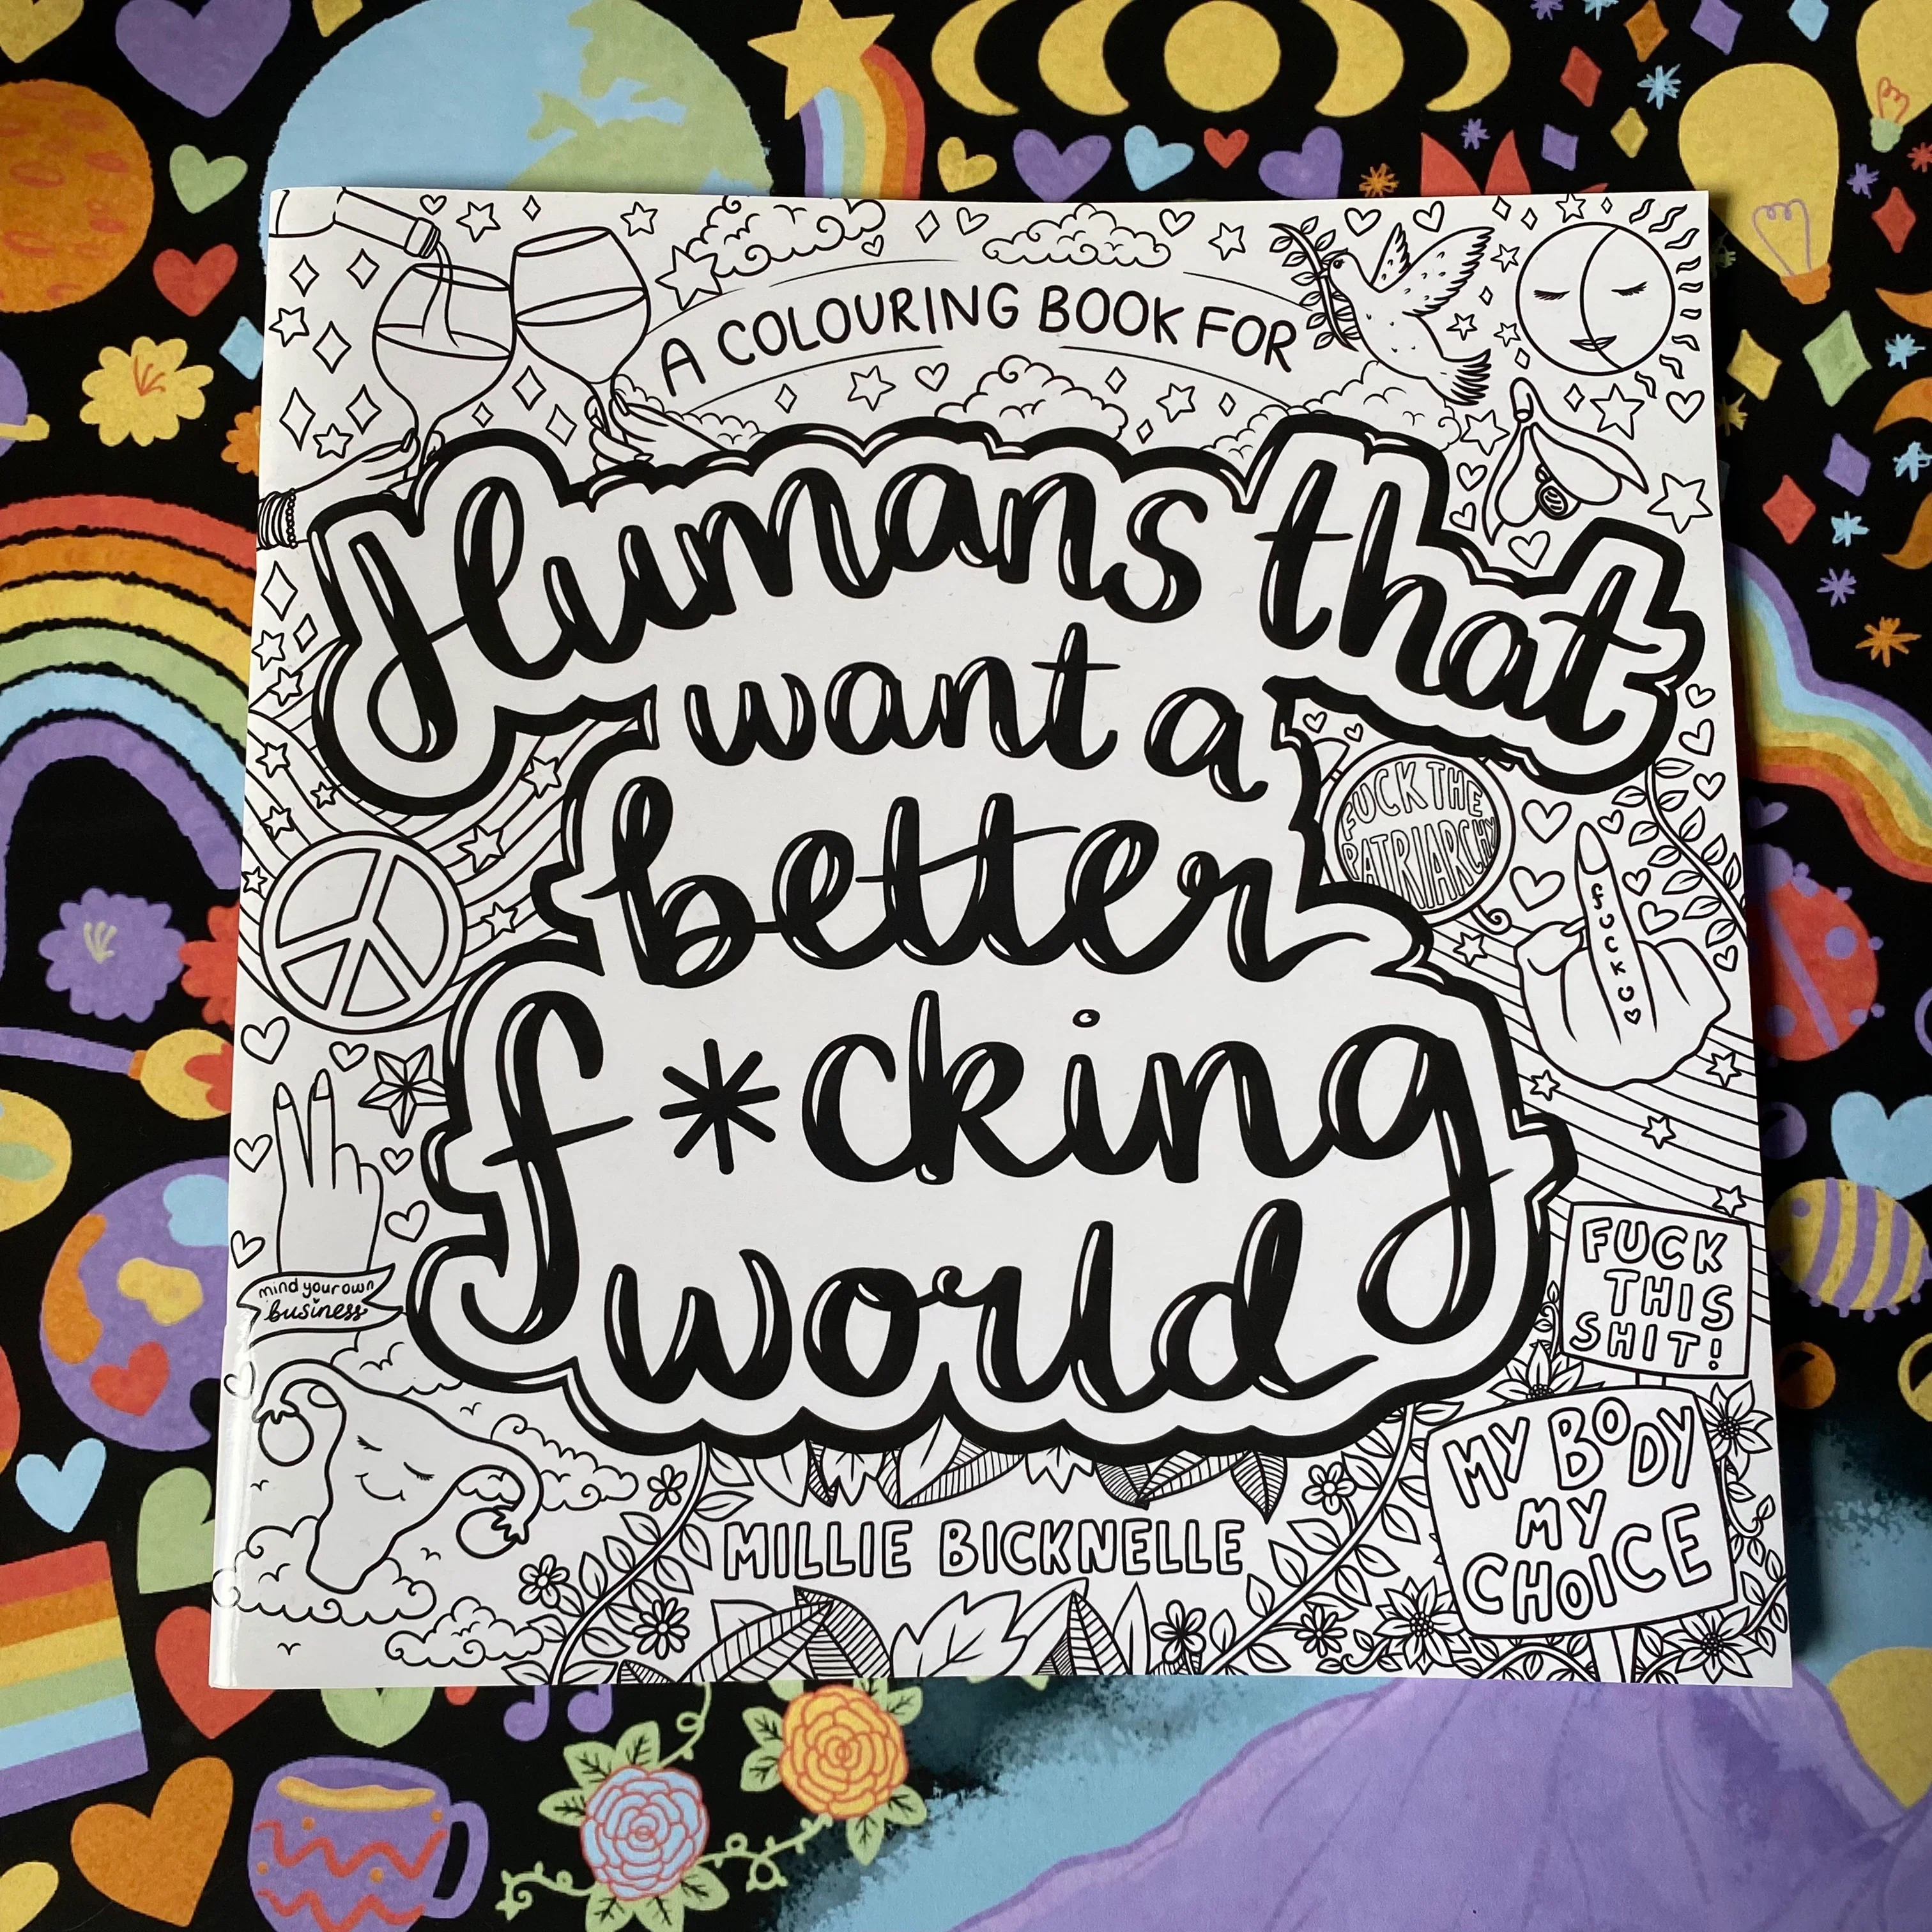 A COLOURING BOOK FOR
Humans that
want a
better
f*cking
world
FUCK THE
PATRIARCHY
fuck u
mind your own
business
FUCK
THIS
SHIT!
MY BODY
MY
CHOICE
MILLIE BICKNELLE